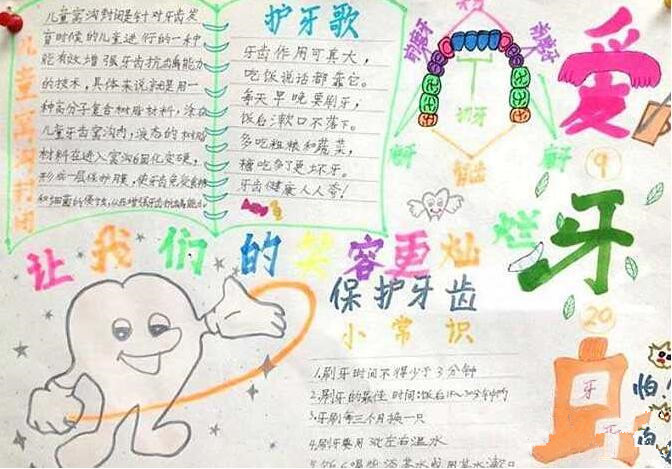 儿童窝沟封闭
儿童窝沟封闭是针对牙齿发
育时候的儿童进行的一种
能有效增强牙齿抗龋能力
的技术，具体来说就是用一
种高分子复合树脂材料，涂在
儿童牙齿窝沟内，液态的树脂
材料在进入窝沟后固化变硬，
形成一层保护膜，使牙齿免受食物
和细菌的侵蚀，从而增强牙齿抗龋能力。
护牙歌
牙齿作用可真大，
吃饭说话都靠它。
每天早晚要刷牙，
饭后漱口不落下。
多吃粗粮和蔬菜，
糖吃多了更坏牙。
牙齿健康人人夸！
切牙
智齿
爱
9
牙
20
让我们的笑容更灿烂
保护牙齿
小常识
1.刷牙时间不得少于3分钟
2.刷牙的最佳时间:饭后
3.牙刷每三个月换一只
4.刷牙要用
左右温水
牙
怕